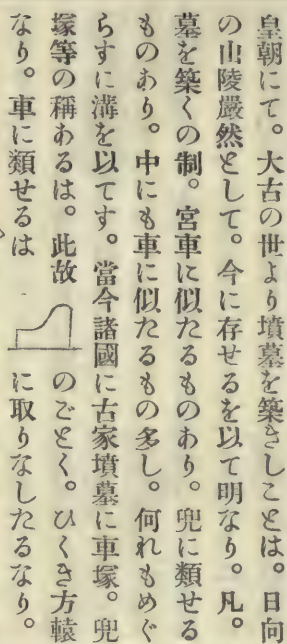 皇朝にて。大古の世より墳墓を築きしことは。日向
の山陵嚴然として。今に存せるを以て明なり。凡。
墓を築くの制。宮車に似たるものあり。兜に類せる
ものあり。中にも車に似たるもの多し。何れもめぐ
らすに溝を以てす。當今諸國に古冢墳墓に車塚。兜
塚等の稱あるは。此故のごとく。ひくき方轅
なり。車に類せるはに取りなしたるなり。